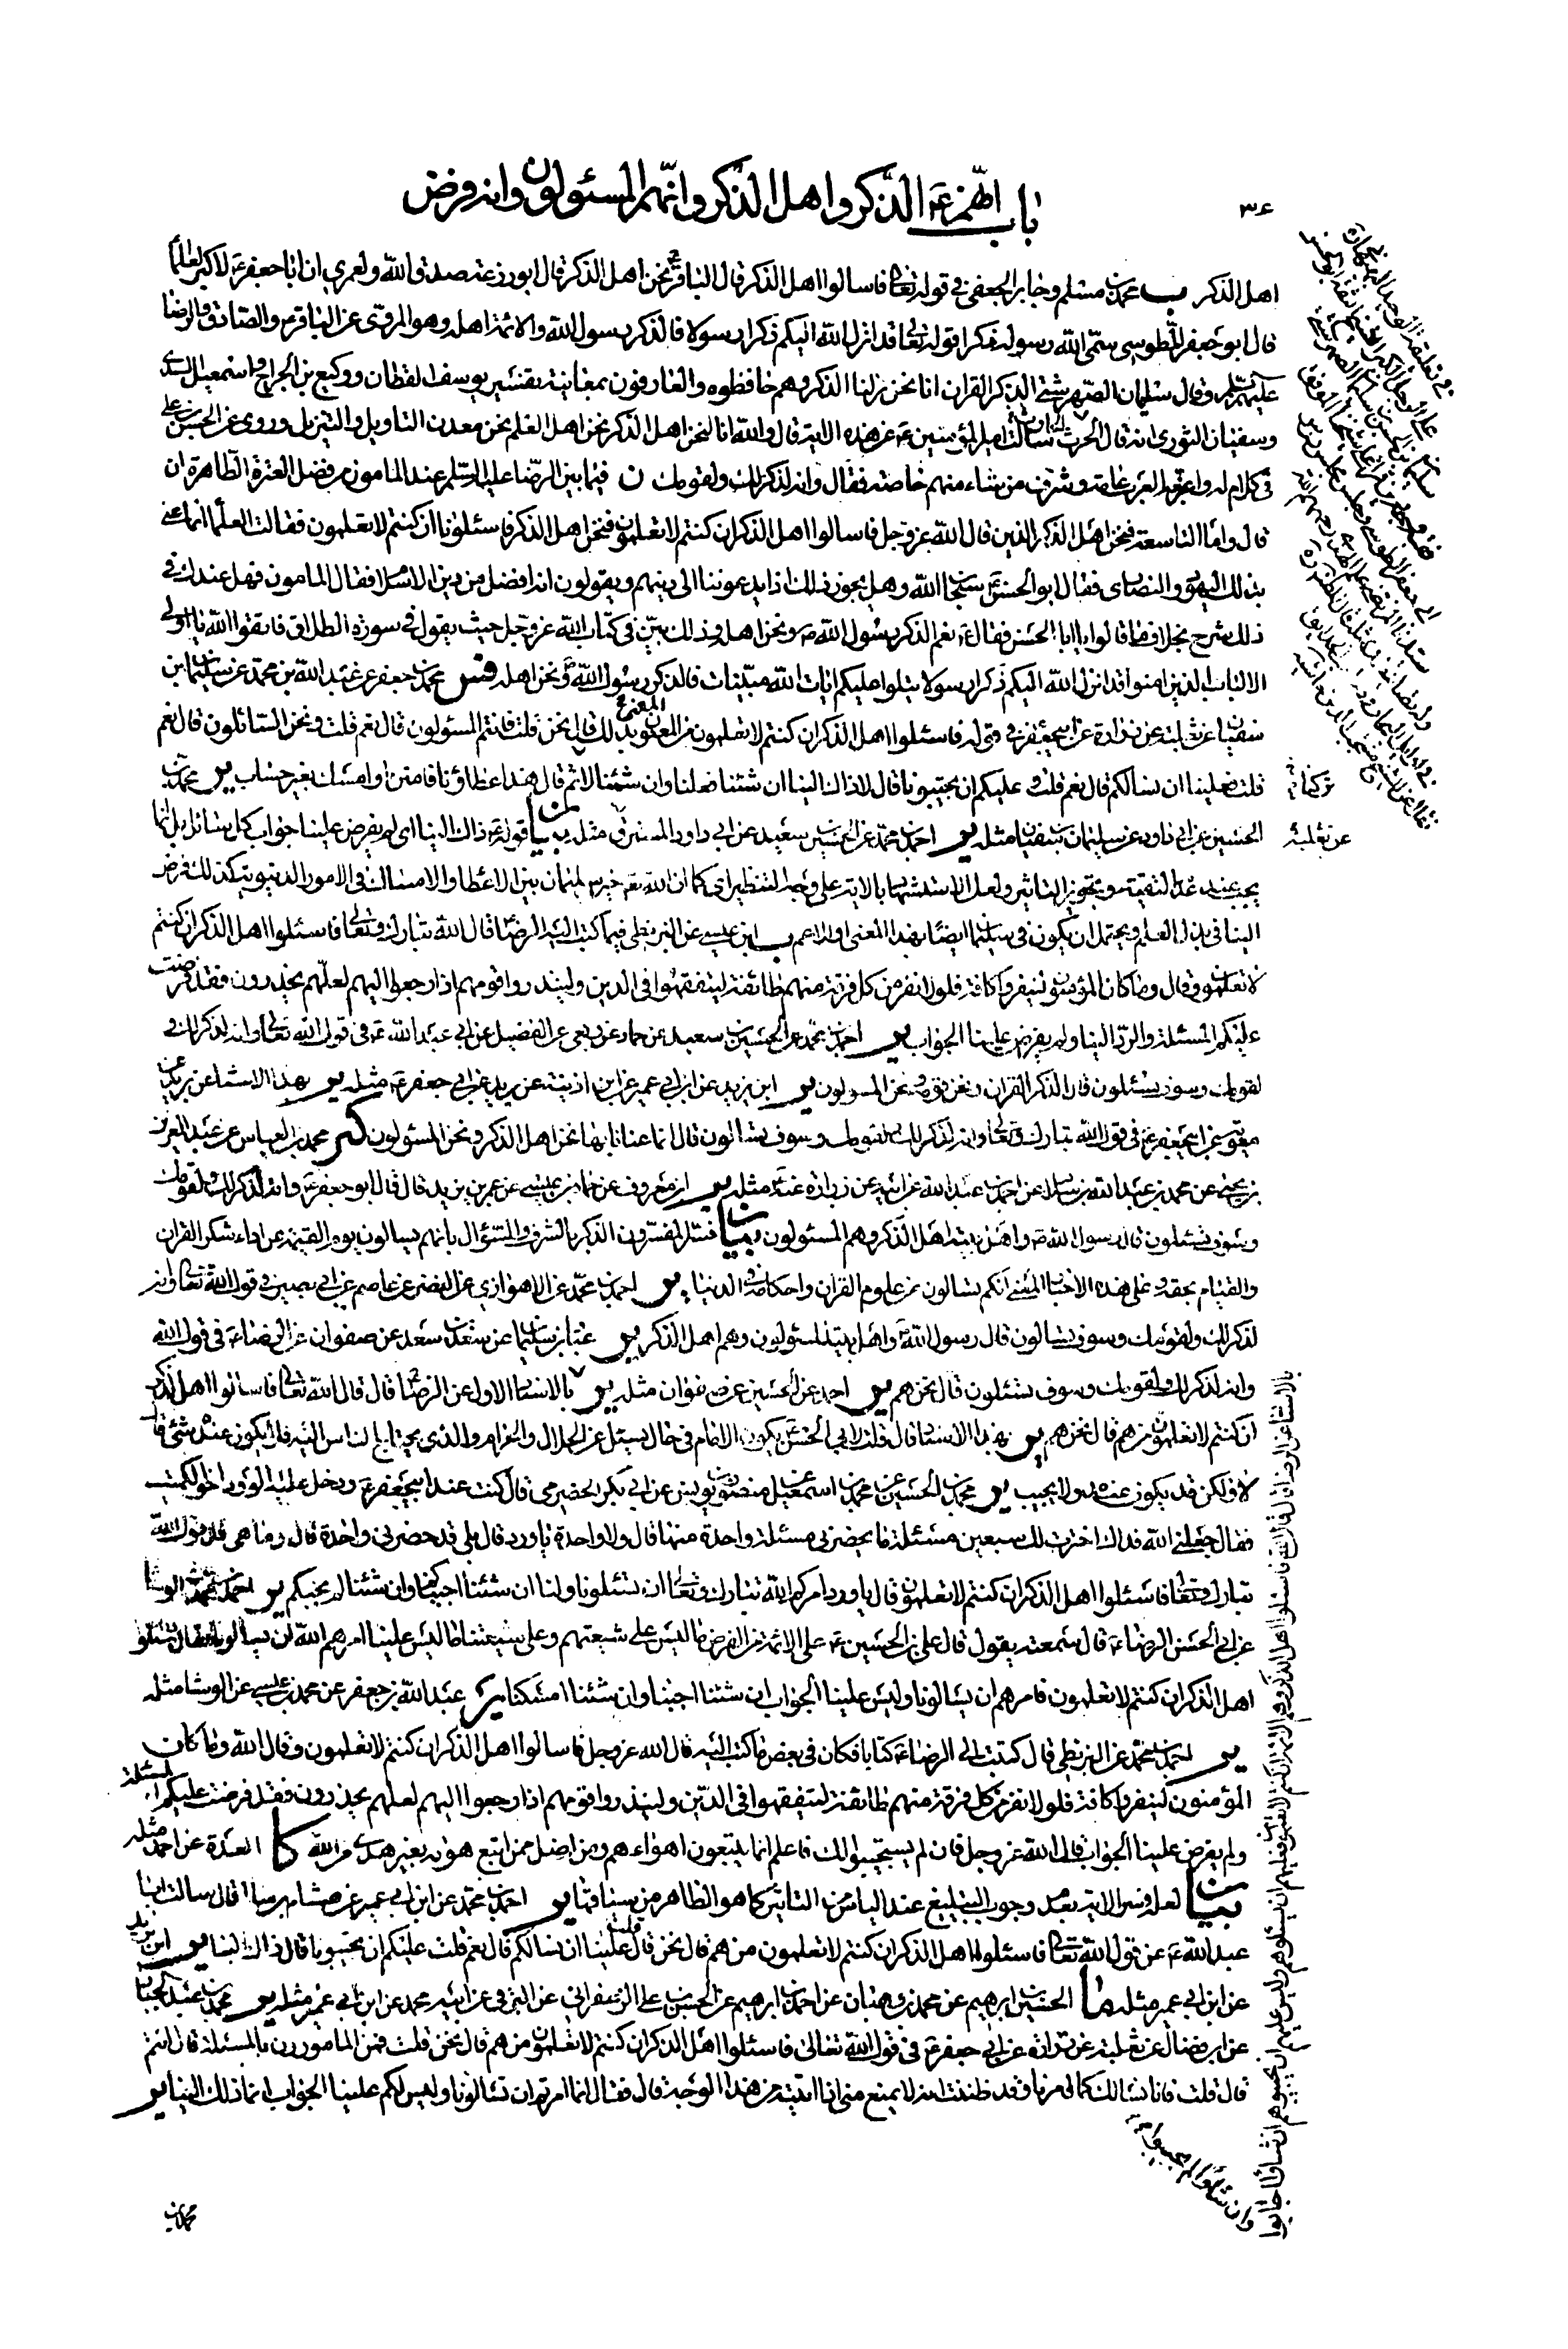 ٣٤
باب انهم ع الذكر واهل الذكر وانهم المسئولون وانه فرض
اهل الذكر قب محمد بن مسلم وجابر الجعفي في قوله تعالى فاسالوا اهل الذكر قال الباقر ع نحن اهل الذكر قال ابو زرعة صدق والله ولعمري ان ابا جعفر ع لاكبر العلما
قال ابو جعفر الطوسي سمى الله رسوله ذكرا قوله تعالى قد انزل الله اليكم ذكرا رسولا فالذكر رسول الله والائمة اهله وهو المروي عن الباقر والصادق والرضا
عليهم السلم وقال سليمان الصهرشتي الذكر القران انا نحن نزلنا الذكر وهم حافظوه والعارفون بمعانيه تفسير يوسف القطان ووكيع بن الجراح واسمعيل السدي
وسفيان الثوري انه قال الحرث سالت امير المؤمنين ع عن هذه الاية قال والله انا لنحن اهل الذكر نحن اهل العلم نحن معدن التاويل والتنزيل وروي عن الحسن بن علي
في كلام له واعز به العرب عامة وشرف من شاء منهم خاصة فقال وانه لذكر لك ولقومك ن فيما بين الرضا عليه السلم عند المامون من فضل العترة الطاهرة ان
قال واما التاسعة فنحن اهل الذكر الذين قال الله عز وجل فاسالوا اهل الذكر ان كنتم لا تعلمون فنحن اهل الذكر فاسئلونا ان كنتم لا تعلمون فقالت العلما انما عنى
بذلك اليهود والنصارى فقال ابو الحسن ع سبحان الله وهل يجوز ذلك اذا يدعوننا الى دينهم ويقولون انه افضل من دين الاسلام فقال المامون فهل عندك في
ذلك شرح بخلاف ما قالوا يا ابا الحسن فقال ع نعم الذكر رسول الله ص ونحن اهله وذلك بين في كتاب الله عز وجل حيث يقول في سورة الطلاق فاتقوا الله يا اولي
الالباب الذين امنوا قد انزل الله اليكم ذكرا رسولا يتلوا عليكم ايات الله مبينات فالذكر رسول الله ص ونحن اهله فس محمد بن جعفر عن عبد الله بن محمد عن سليمان بن
سفيان عن ثعلبة عن زرارة عن ابي جعفر ع في قوله فاسئلوا اهل الذكر ان كنتم لا تعلمون من المعنون بذلك قال نحن قلت فانتم المسئولون قال نعم قلت ونحن السائلون قال نعم
قلت فعلينا ان نسالكم قال نعم قلت وعليكم ان تجيبونا قال لا ذاك الينا ان شئنا فعلنا وان شئنا لا ثم قال هذا عطاؤنا فامنن او امسك بغير حساب ير محمد بن
الحسين عن ابي داود عن سليمان بن سفيان مثله ير احمد بن محمد عن الحسين بن سعيد عن ابي داود المسترق مثله بيان قوله ع ذاك الينا اى لم يفرض علينا جواب كل سائل بل انما
يجب عند عدم التقية وتجويز التاثير ولعل الاستشهاد بالاية على وجه التنظير اى كما ان الله تعالى خير سليمان بين الاعطا والامساك في الامور الدنيوية كذلك فرض
الينا في بذل العلم ويحتمل ان يكون في سليمان ايضا بهذا المعنى او الاعم ب ابن عيسى عن البزنطي فيما كتب اليه الرضا ع قال الله تبارك وتعالى فاسئلوا اهل الذكر ان كنتم
لا تعلمون وقال وما كان المؤمنون لينفروا كافة فلولا نفر من كل فرقة منهم طائفة ليتفقهوا في الدين ولينذروا قومهم اذا رجعوا اليهم لعلهم يحذرون فقد فرضت
عليكم المسئلة والرد الينا ولم يفرض علينا الجواب ير احمد بن محمد عن الحسين بن سعيد عن حماد عن ربعي عن الفضيل عن ابي عبد الله ع في قول الله تعالى وانه لذكر لك
ولقومك وسوف تسئلون قال الذكر القران ونحن قومه ونحن المسئولون ير ابن يزيد عن ابن ابي عمير عن ابن اذينة عن بريد عن ابي جعفر ع مثله ير بهذا الاسناد عن بريد بن
معوية عن ابي جعفر ع في قول الله تبارك وتعالى وانه لذكر لك ولقومك وسوف تسالون قال انما عنانا بها نحن اهل الذكر ونحن المسئولون كنز محمد بن العباس عن عبد العزيز
بن يحيى عن محمد بن عبد الرحمن بن سلام عن احمد بن عبد الله عن ابيه عن زرارة عنه ع مثله ير ابن معروف عن حماد بن عيسى عن عمر بن يزيد قال قال ابو جعفر ع وانه لذكر لك ولقومك
وسوف تسئلون قال رسول الله ص واهل بيته اهل الذكر وهم المسئولون بيان فسر المفسرون الذكر بالشرف والسؤال بانهم يسالون يوم القيمة عن اداء شكر القران
والقيام بحقه وعلى هذه الاخبار المعنى انكم تسالون عن علوم القران واحكامه في الدنيا ير احمد بن محمد عن الاهوازي عن النضر عن عاصم عن ابي بصير في قول الله تعالى وانه
لذكر لك ولقومك وسوف تسالون قال رسول الله ص واهل بيته المسئولون وهم اهل الذكر ير عباد بن سليمان عن سعد بن سعد عن صفوان عن الرضا ع في قول الله
وانه لذكر لك ولقومك وسوف تسئلون قال نحن هم ير احمد عن الحسين عن صفوان مثله ير بالاسناد الاول عن الرضا ع قال قال الله تعالى فاسالوا اهل الذكر
ان كنتم لا تعلمون من هم قال نحن هم ير بهذا الاسناد قال قلت لابي الحسن ع يكون الامام في حال يسئل عن الحلال والحرام والذي يحتاج الناس اليه فلا يكون عنده شئ قال
لا ولكن قد يكون عنده ولا يجيب ير محمد بن الحسين عن محمد بن اسمعيل عن منصور بن يونس عن ابي بكر الحضرمي قال كنت عند ابي جعفر ع ودخل عليه الورد اخو الكميت
فقال جعلني الله فداك اخترت لك سبعين مسئلة ما يحضرني مسئلة واحدة منها قال ولا واحدة يا ورد قال بلى قد حضرني واحدة قال وما هي قال قول الله
تبارك وتعالى فاسئلوا اهل الذكر ان كنتم لا تعلمون قال يا ورد امركم الله تبارك وتعالى ان تسئلونا ولنا ان شئنا اجبناكم وان شئنا لم نجبكم ير احمد بن محمد عن الوشا
عن ابي الحسن الرضا ع قال سمعته يقول قال علي بن الحسين ع على الائمة من الفرض ما ليس على شيعتهم وعلى شيعتنا ما ليس علينا امرهم الله ان يسالونا فقال فسئلوا
اهل الذكر ان كنتم لا تعلمون فامرهم ان يسالونا وليس علينا الجواب ان شئنا اجبنا وان شئنا امسكنا ير عبد الله بن جعفر عن محمد بن عيسى عن الوشا مثله
ير احمد بن محمد عن البزنطي قال كتبت الى الرضا ع كتابا فكان في بعض ما كتب اليه قال الله عز وجل فاسالوا اهل الذكر ان كنتم لا تعلمون وقال الله وما كان
المؤمنون لينفروا كافة فلولا نفر من كل فرقة منهم طائفة ليتفقهوا في الدين ولينذروا قومهم اذا رجعوا اليهم لعلهم يحذرون فقد فرضت عليكم المسئلة
ولم يفرض علينا الجواب قال الله عز وجل فان لم يستجيبوا لك فاعلم انما يتبعون اهواءهم ومن اضل ممن اتبع هواه بغير هدى من الله كا العدة عن احمد مثله
بيان لعله فسر الاية بعدم وجوب التبليغ عند الياس من التاثير كما هو الظاهر من سياقها ير احمد بن محمد عن ابن ابي عمير عن هشام بن سالم قال سالت ابا
عبد الله ع عن قول الله تعالى فاسئلوا اهل الذكر ان كنتم لا تعلمون من هم قال نحن قال قلت علينا ان نسالكم قال نعم قلت عليكم ان تجيبونا قال ذاك الينا ير ابن يزيد
عن ابن ابي عمير مثله ما الحسين بن ابرهيم عن محمد بن وهبان عن احمد بن ابرهيم عن الحسن بن علي الزعفراني عن البرقي عن ابيه محمد عن ابن ابي عمير مثله ير محمد بن عبد الجبار
عن ابن فضال عن ثعلبة عن زرارة عن ابي جعفر ع في قول الله تعالى فاسئلوا اهل الذكر ان كنتم لا تعلمون من هم قال نحن قلت فمن المامورون بالمسئلة قال انتم
قال قلت فانا نسالك كما امرنا وقد ظننت انه لا يمنع مني اذا اتيته من هذا الوجه قال فقال انما امرتم ان تسالونا وليس لكم علينا الجواب انما ذلك الينا ير
عن ثعلبة
بالاسناد عن الرضا ع قال قال الله تعالى فاسئلوا اهل الذكر وهم الائمة ان كنتم لا تعلمون فعليهم ان يسئلوهم وليس عليهم ان يجيبوهم ان شاؤا اجابوا
وان شاؤا لم يجيبوا
محمد بن